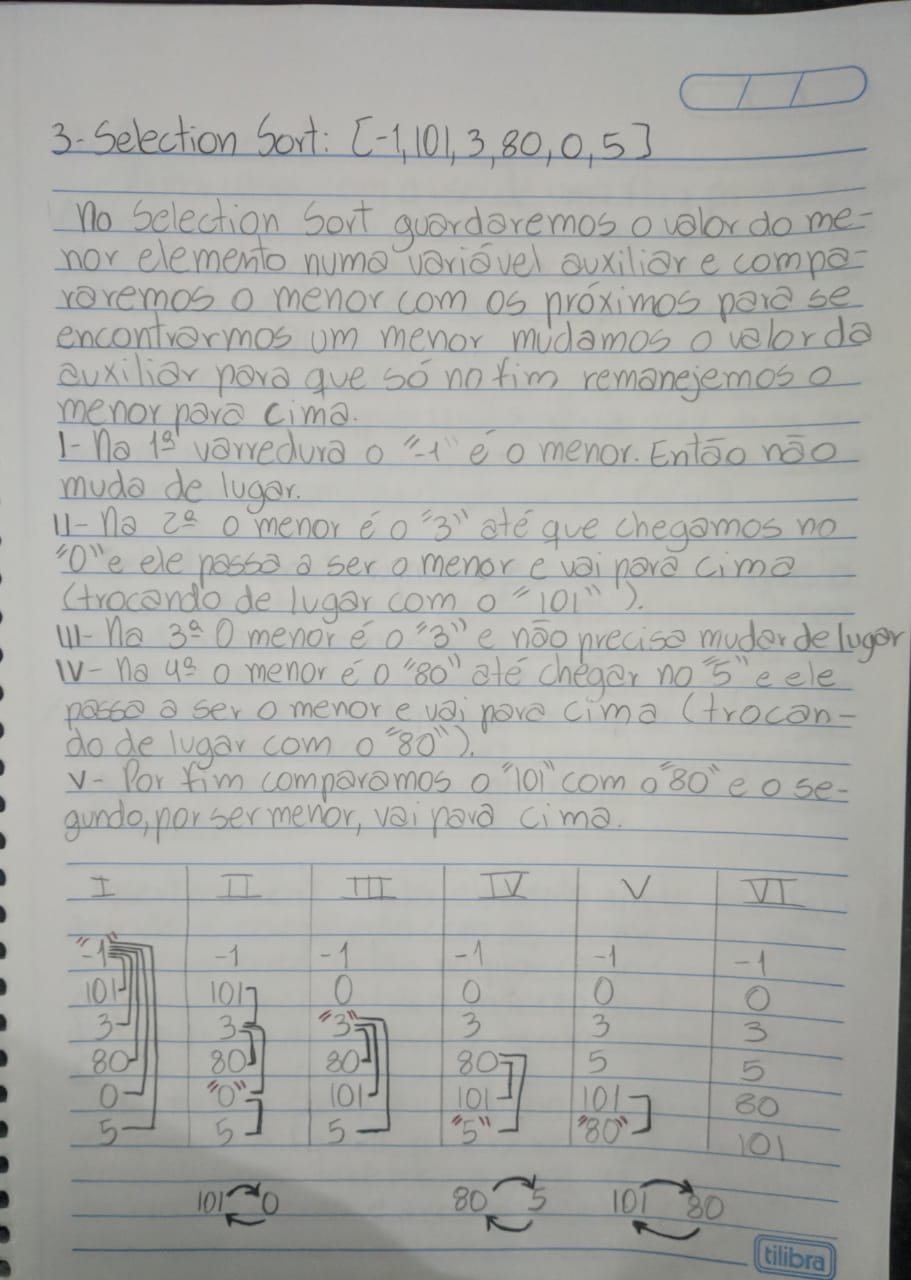 3- Selection Sort: [-1,101,3,80,0,5]
No Selection Sort guardaremos o valor do me-
nor elemento numa variável auxiliar e compa-
raremos o menor com os próximos para se
encontrarmos um menor mudamos o valor da
auxiliar para que só no fim remanejemos o
menor para cima.
I- Na 1ª varredura o "-1" é o menor. Então não
muda de lugar.
II- Na 2ª o menor é o "3" até que chegamos no
"0" e ele passa a ser o menor e vai para cima
(trocando de lugar com o "101").
III- Na 3ª O menor é o "3" e não precisa mudar de lugar
IV- Na 4ª o menor é o "80" até chegar no "5" e ele
passa a ser o menor e vai para cima (trocan-
do de lugar com o "80").
V- Por fim comparamos o "101" com o "80" e o se-
gundo, por ser menor, vai para cima.
I II III IV V VI
"-1" -1 -1 -1 -1 -1
101 101 0 0 0 0
3 3 "3" 3 3 3
80 80 80 80 5 5
0 "0" 101 101 101 80
5 5 5 "5" "80" 101
101 0 80 5 101 80
tilibra